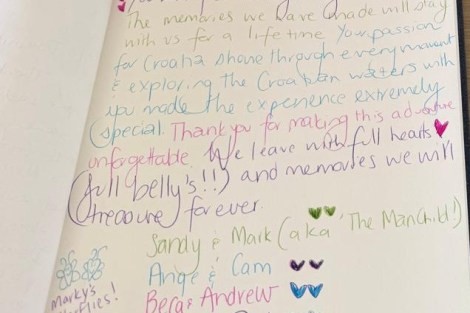 The memories we have made will stay
with us for a life time Your passion
for Croatia shone through every moment
& exploring the Croatian waters with
you made the experience extremely
special. Thank you for making this adventure
unforgettable. We leave with full hearts
(full belly's!!) and memories we will
treasure forever.
Sandy & Mark (aka 'The Manchild!)
Ange & Cam
Becs & Andrew
Marky's